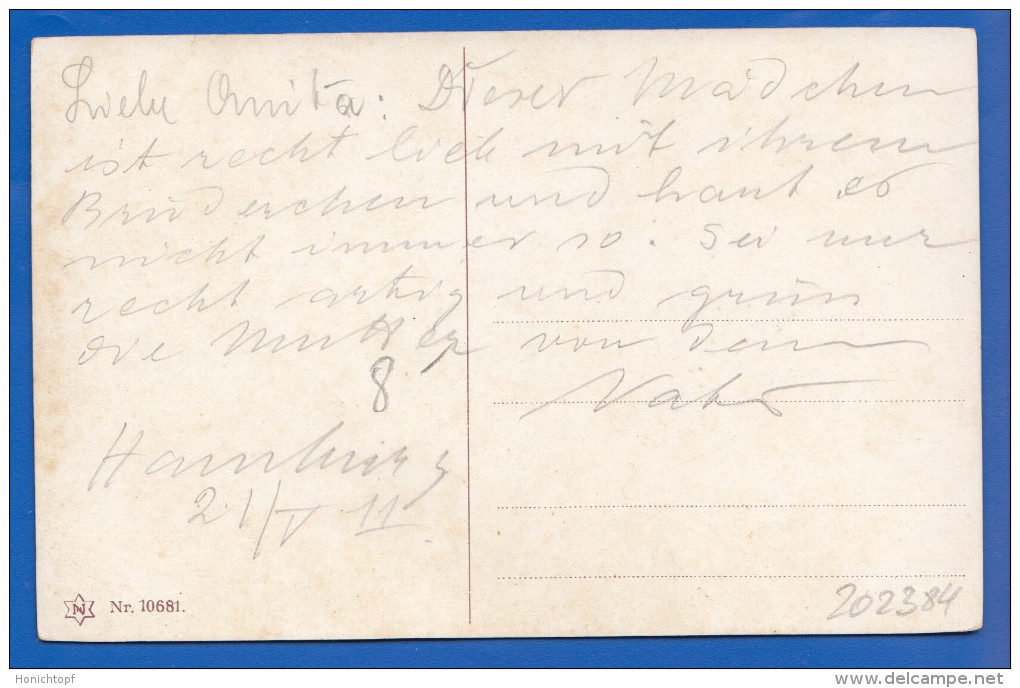 Liebe Annita: Dieser Mädchen
ist recht lieb mit ihrem
Brüderchen und haut es
nicht immer so. Sei nur
recht artig und grüss
die Mutter von Deinem
Vater
8
Hamburg
21/V 11.
N Nr. 10681.
202384
Honichtopf
www.delcampe.net